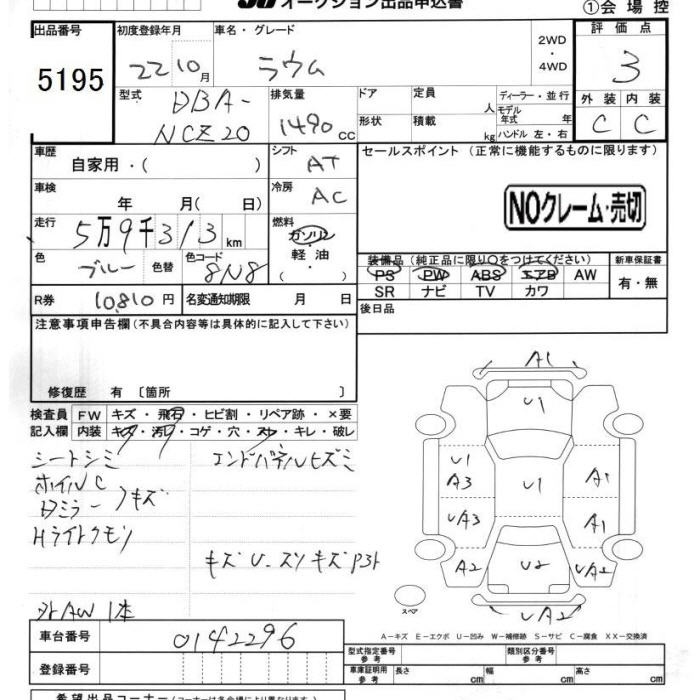 オークション出品申込書
①会場控
出品番号
5195
初度登録年月
22 10月
車名・グレード
ラウム
2WD
・
4WD
評価点
3
外装 内装
C C
型式
DBA-
NCZ20
排気量
1490cc
ドア
形状
定員 人
積載 kg
ディーラー・並行
モデル年式 年
ハンドル 左・右
車歴
自家用・( )
シフト
AT
車検
年 月( 日)
冷房
AC
走行
5万9千313km
燃料
ガソリン
・
軽油
・
( )
色
ブルー
色替
色コード
8N8
R券
10,810円
名変通知期限 月 日
セールスポイント (正常に機能するものに限ります)
NOクレーム・売切
装備品(純正品に限り○をつけてください)
PS PW ABS エアB AW
SR ナビ TV カワ
新車保証書
有・無
後日品
注意事項申告欄(不具合内容等は具体的に記入して下さい)
修復歴 有〔箇所 〕
検査員記入欄
FW キズ・飛石・ヒビ割・リペア跡・×要
内装 キズ・汚レ・コゲ・穴・スレ・キレ・破レ
シートシミ
ホイルC
Dミラーノキズ
Hライトクモリ
エンドパネルヒズミ
キズU.スリキズP3ト
外AW 1本
A1
U1
U1
A3
A1
U1
UA3
A1
A2
U2
UA2
UA2
スペア
A-キズ E-エクボ U-凹み W-補修跡 S-サビ C-腐食 XX-交換済
車台番号
0142296
登録番号
型式指定番号
参考
類別区分番号
参考
車庫証明用
参考
長さ cm
幅 cm
高さ cm
希望出品コーナー(コーナーは各会場により異なります)